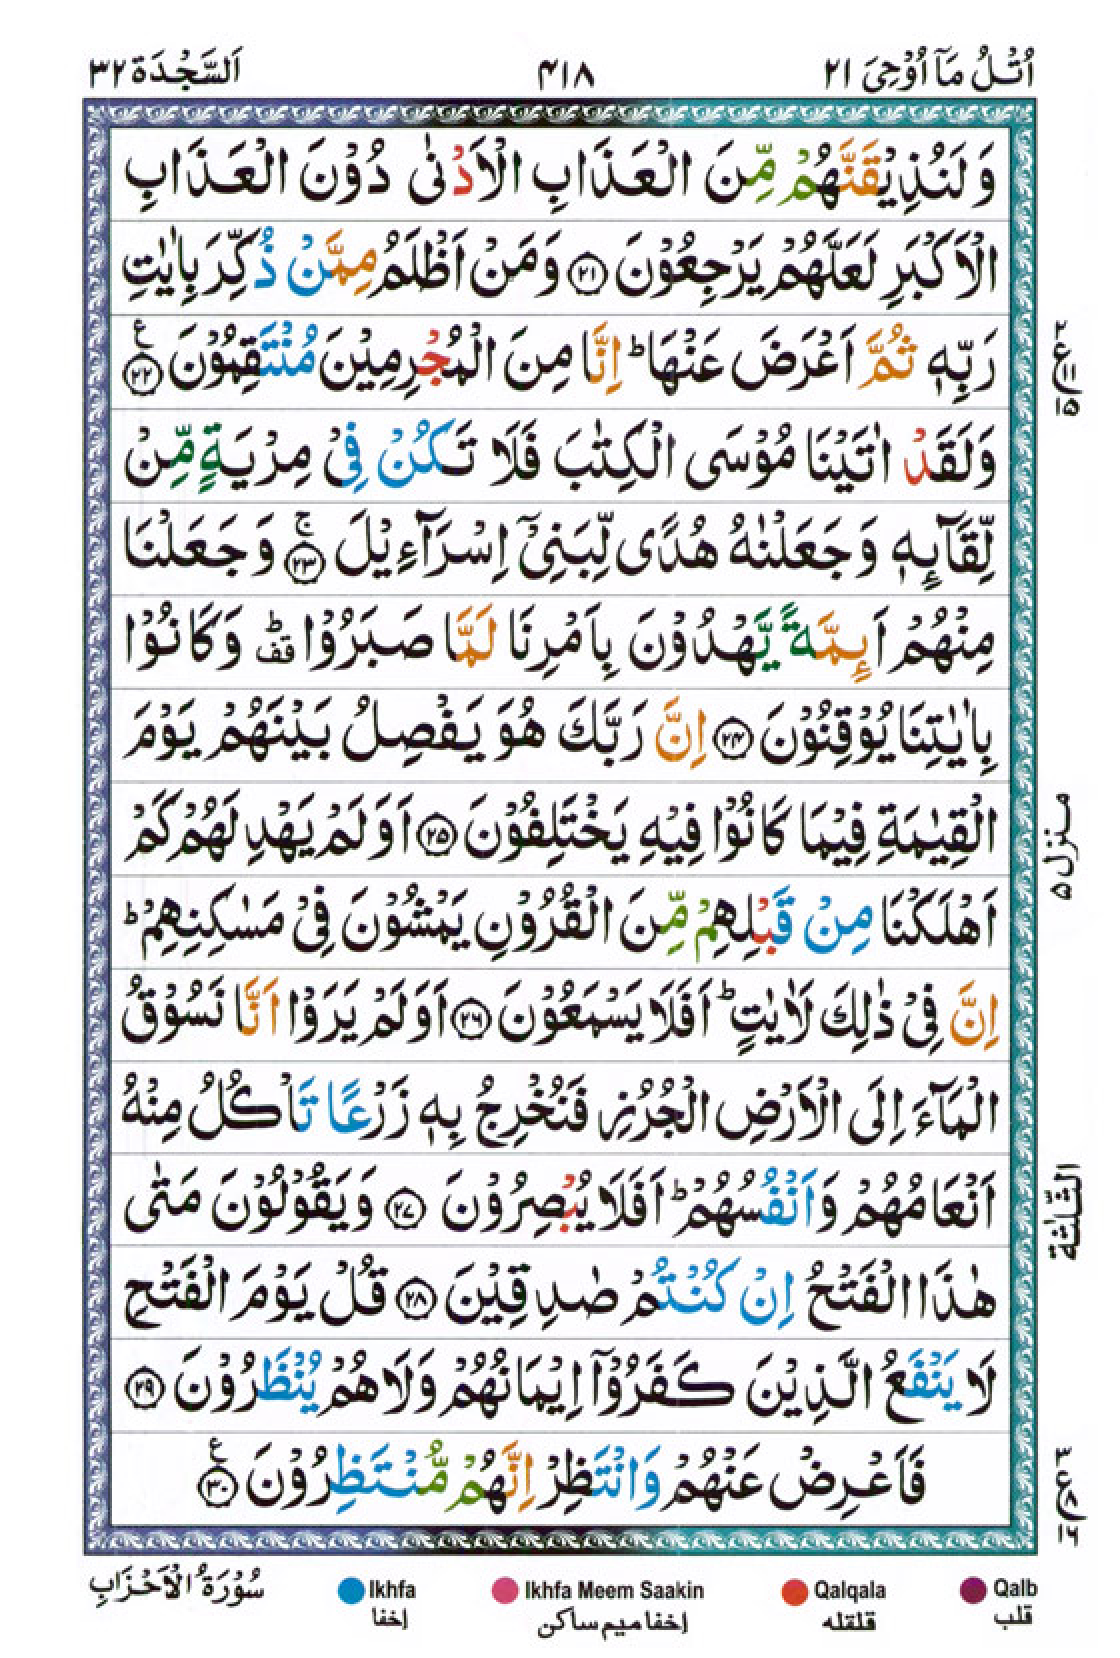 اُتْلُ مَآ اُوْحِیَ ٢١
٤١٨
اَلسَّجْدَة ٣٢
وَلَنُذِیْقَنَّهُمْ مِّنَ الْعَذَابِ الْاَدْنٰی دُوْنَ الْعَذَابِ
الْاَكْبَرِ لَعَلَّهُمْ یَرْجِعُوْنَ ﴿٢١﴾ وَمَنْ اَظْلَمُ مِمَّنْ ذُكِّرَ بِاٰیٰتِ
رَبِّهٖ ثُمَّ اَعْرَضَ عَنْهَا ؕ اِنَّا مِنَ الْمُجْرِمِیْنَ مُنْتَقِمُوْنَ ﴿٢٢﴾ ع
وَلَقَدْ اٰتَیْنَا مُوْسَی الْكِتٰبَ فَلَا تَكُنْ فِیْ مِرْیَةٍ مِّنْ
لِّقَآىِٕهٖ وَجَعَلْنٰهُ هُدًی لِّبَنِیْۤ اِسْرَآءِیْلَ ﴿٢٣﴾ ۚ وَجَعَلْنَا
مِنْهُمْ اَىِٕمَّةً یَّهْدُوْنَ بِاَمْرِنَا لَمَّا صَبَرُوْا قف وَكَانُوْا
بِاٰیٰتِنَا یُوْقِنُوْنَ ﴿٢٤﴾ اِنَّ رَبَّكَ هُوَ یَفْصِلُ بَیْنَهُمْ یَوْمَ
الْقِیٰمَةِ فِیْمَا كَانُوْا فِیْهِ یَخْتَلِفُوْنَ ﴿٢٥﴾ اَوَلَمْ یَهْدِ لَهُمْ كَمْ
اَهْلَكْنَا مِنْ قَبْلِهِمْ مِّنَ الْقُرُوْنِ یَمْشُوْنَ فِیْ مَسٰكِنِهِمْ ؕ
اِنَّ فِیْ ذٰلِكَ لَاٰیٰتٍ ؕ اَفَلَا یَسْمَعُوْنَ ﴿٢٦﴾ اَوَلَمْ یَرَوْا اَنَّا نَسُوْقُ
الْمَآءَ اِلَی الْاَرْضِ الْجُرُزِ فَنُخْرِجُ بِهٖ زَرْعًا تَاْكُلُ مِنْهُ
اَنْعَامُهُمْ وَاَنْفُسُهُمْ ؕ اَفَلَا یُبْصِرُوْنَ ﴿٢٧﴾ وَیَقُوْلُوْنَ مَتٰی
هٰذَا الْفَتْحُ اِنْ كُنْتُمْ صٰدِقِیْنَ ﴿٢٨﴾ قُلْ یَوْمَ الْفَتْحِ
لَا یَنْفَعُ الَّذِیْنَ كَفَرُوْۤا اِیْمَانُهُمْ وَلَا هُمْ یُنْظَرُوْنَ ﴿٢٩﴾
فَاَعْرِضْ عَنْهُمْ وَانْتَظِرْ اِنَّهُمْ مُّنْتَظِرُوْنَ ﴿٣٠﴾ ع
٢ ع ١٥
منزل ٥
الثلثة
٣ ع ٨ ١٦
Qalb
قلب
Qalqala
قلقله
Ikhfa Meem Saakin
إخفا ميم ساكن
Ikhfa
إخفا
سُوْرَةُ الْاَحْزَابِ